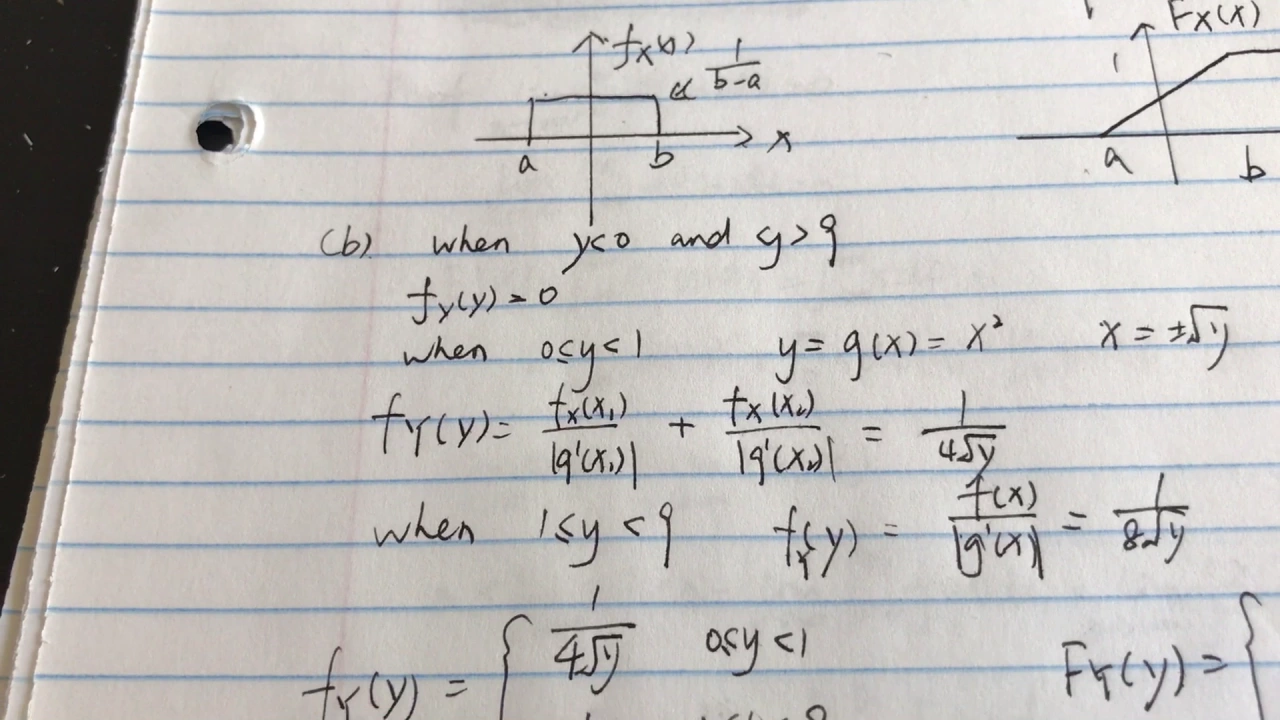 f_X(x) 1/(b-a)
F_X(x)
1
a b x
a b
(b). when y<0 and y>9
f_Y(y)=0
when 0≤y<1 y=g(x)=x² x=±√y
f_Y(y)= f_X(x₁)/|g'(x₁)| + f_X(x₂)/|g'(x₂)| = 1/(4√y)
when 1≤y<9 f_Y(y) = f(x)/|g'(x)| = 1/(8√y)
f_Y(y) = { 1/(4√y) 0≤y<1
F_Y(y) = {